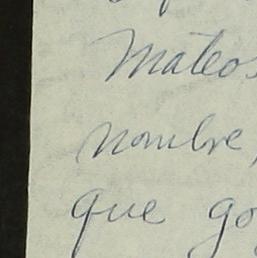 Mateos
nombre,
que go